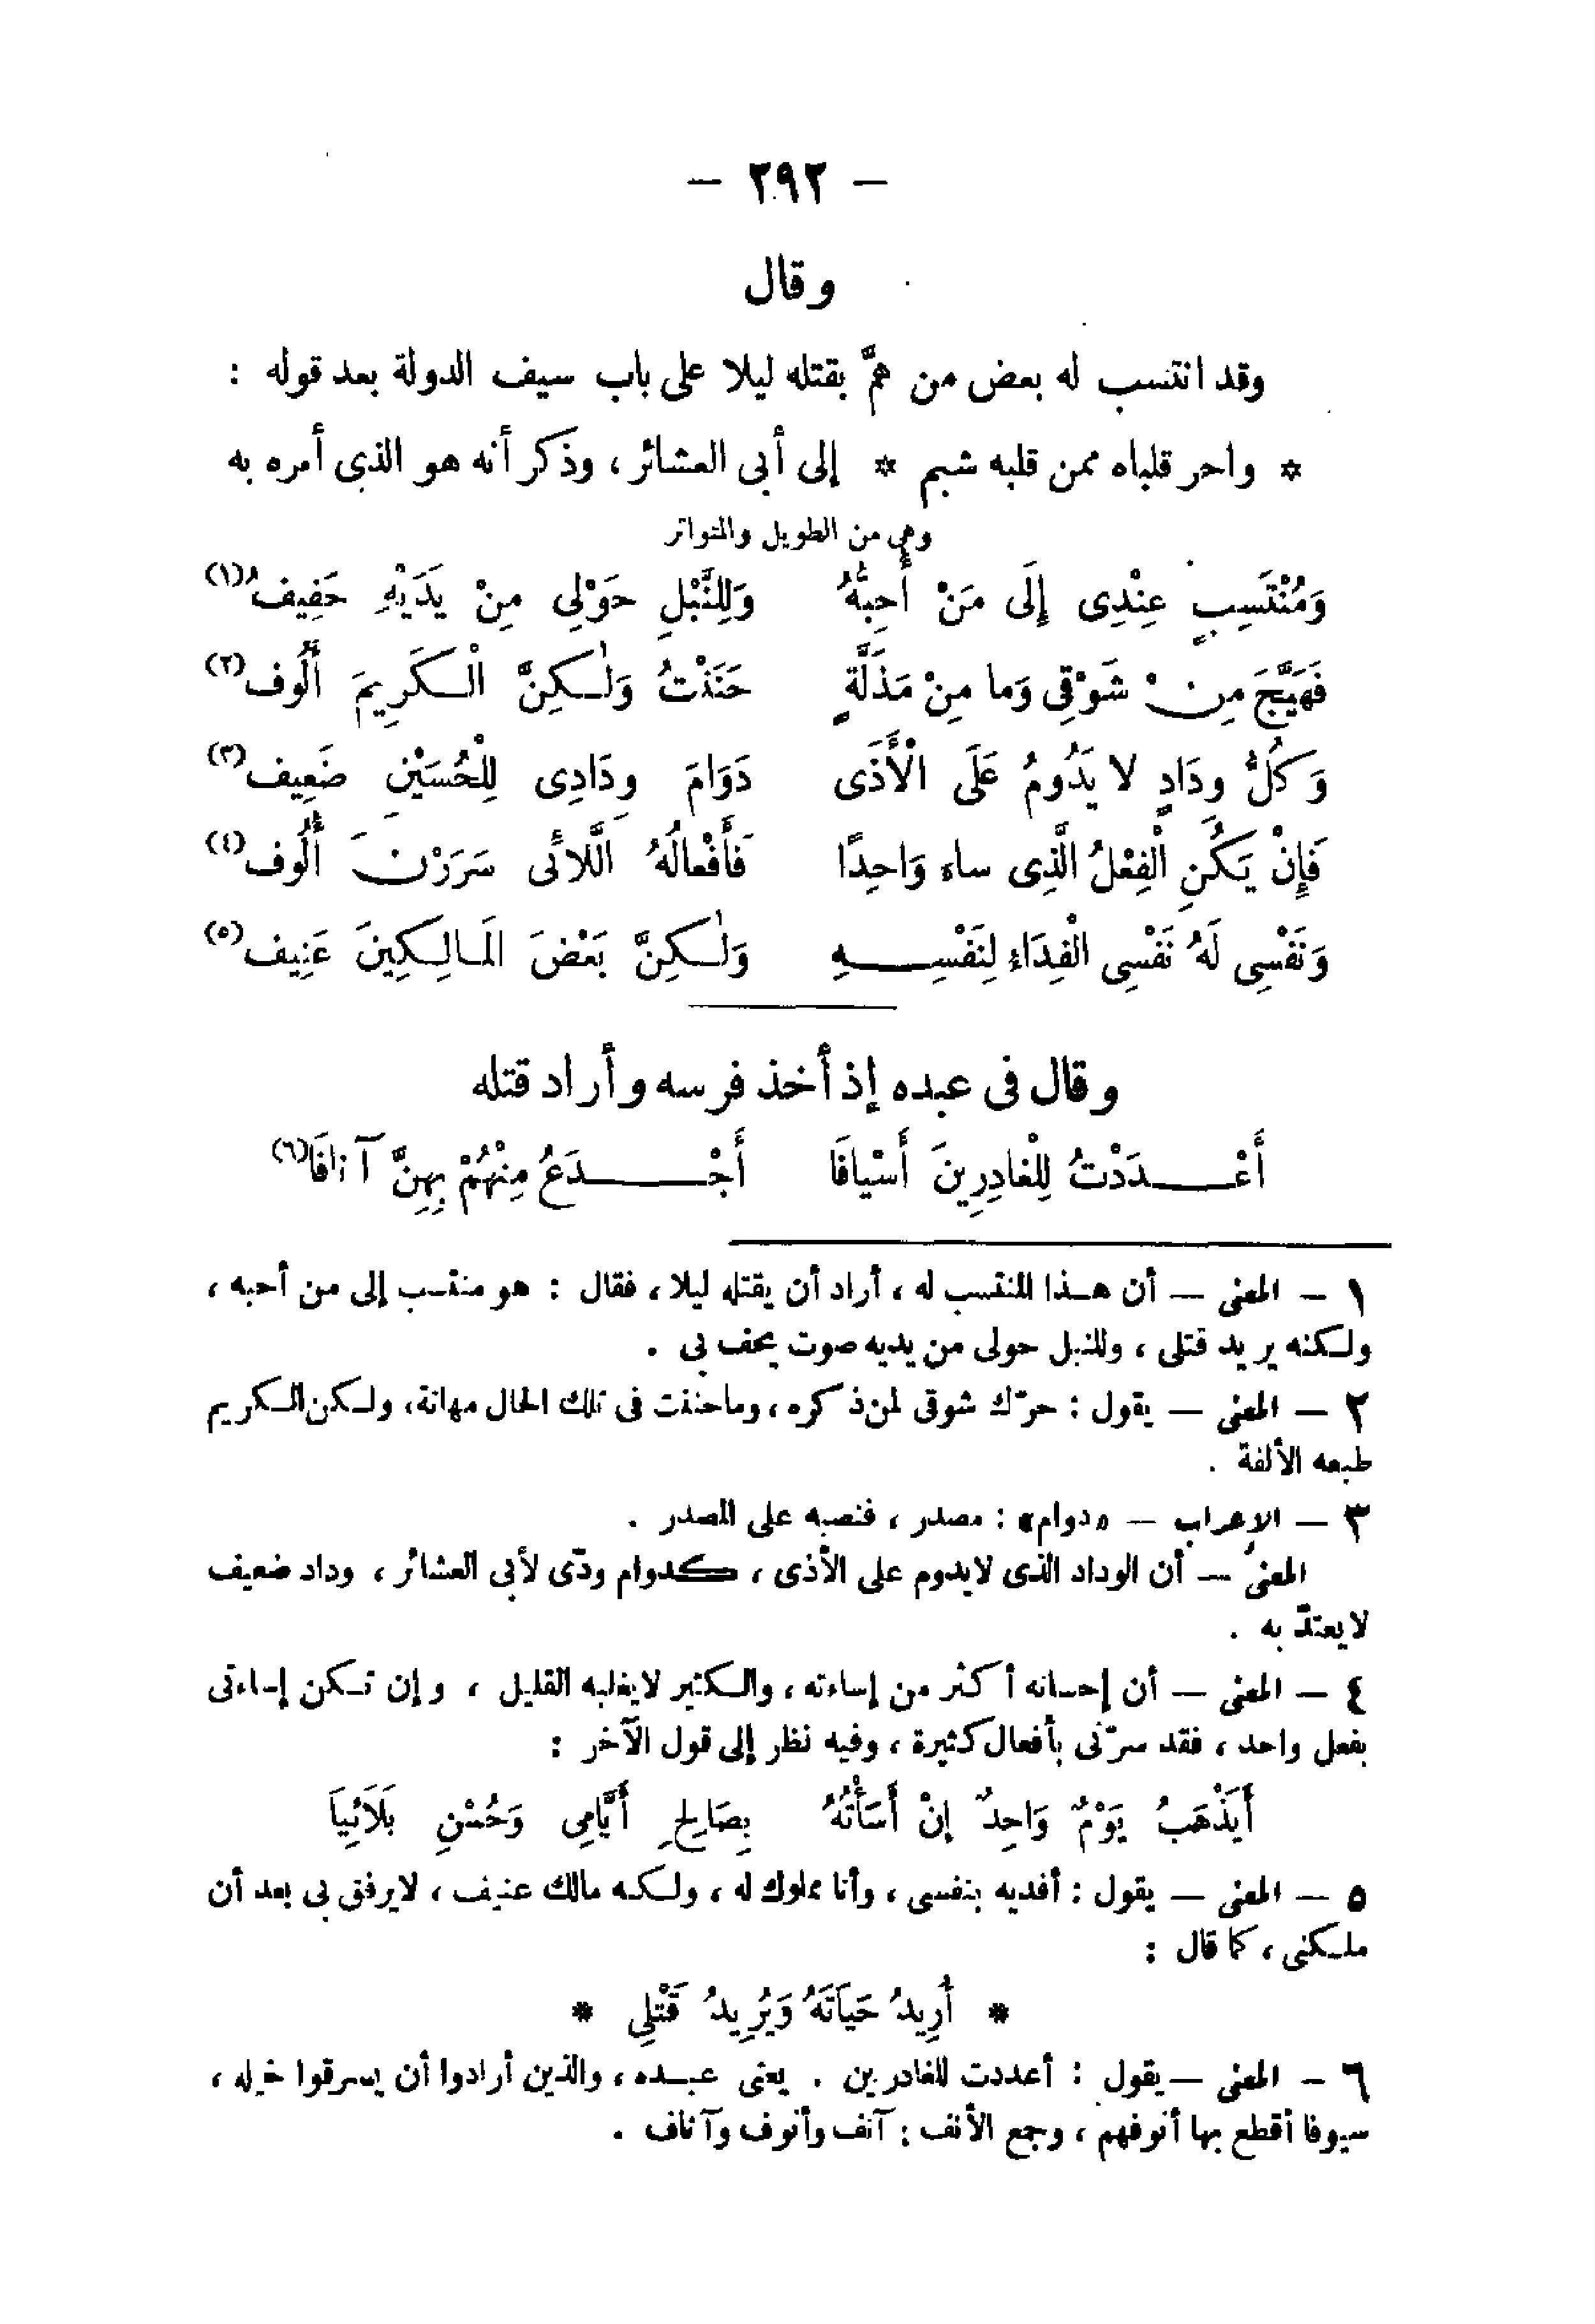 — ٢٩٢ —
وقال
وقد انتسب له بعض من همَّ بقتله ليلا على باب سيف الدولة بعد قوله :
* واحر قلباه ممن قلبه شبم * إلى أبى العشائر ، وذكر أنه هو الذى أمره به
وهى من الطويل والمتواتر
وَمُنْتَسِبٍ عِنْدِى إِلَى مَنْ أُحِبُّهُ وَلِلنَّبْلِ حَوْلِى مِنْ يَدَيْهِ حَفِيفُ(١)
فَهَيَّجَ مِنْ شَوْقِى وَما مِنْ مَذَلَّةٍ حَنَنْتُ وَلٰكِنَّ الْكَرِيمَ أَلُوف(٢)
وَكُلُّ وِدَادٍ لا يَدُومُ عَلَى الْأَذَى دَوَامَ وِدَادِى لِلْحُسَيْنِ ضَعِيف(٣)
فَإِنْ يَكُنِ الْفِعْلُ الَّذِى ساء وَاحِدًا فَأَفْعالُهُ الَّلائى سَرَرْنَ أُلُوف(٤)
وَنَفْسِى لَهُ نَفْسِى الْفِدَاء لِنَفْسِهِ وَلٰكِنَّ بَعْضَ المَالِكِينَ عَنِيف(٥)
وقال فى عبده إذ أخذ فرسه وأراد قتله
أَعْدَدْتُ لِلْغادِرِينَ أَسْيافَا أَجْدَعُ مِنْهُمْ بِهِنَّ آنافَا(٦)
١ — المعنى — أن هذا المنتسب له ، أراد أن يقتله ليلا ، فقال : هو منتسب إلى من أحبه ،
ولكنه يريد قتلى ، وللنبل حولى من يديه صوت يحف بى .
٢ — المعنى — يقول : حرّك شوقى لمن ذكره ، وماحننت فى تلك الحال مهانة، ولكن الكريم
طبعه الألفة .
٣ — الإعراب — «دوام» : مصدر ، فنصبه على المصدر .
المعنى — أن الوداد الذى لايدوم على الأذى ، كدوام ودّى لأبى العشائر ، وداد ضعيف
لايعتدّ به .
٤ — المعنى — أن إحسانه أكثر من إساءته ، والكثير لايغلبه القليل ، وإن تكن إساءتى
بفعل واحد ، فقد سرّنى بأفعال كثيرة ، وفيه نظر إلى قول الآخر :
أَيَذْهَبُ يَوْمٌ وَاحِدٌ إنْ أَسَأْتُهُ بِصَالِحِ أَيَّامِى وَحُسْنِ بَلَائِيَا
٥ — المعنى — يقول : أفديه بنفسى ، وأنا مملوك له ، ولكنه مالك عنيف ، لايرفق بى بعد أن
ملكنى ، كما قال :
* أُرِيدُ حَيَاتَهُ وَيُرِيدُ قَتْلِى *
٦ — المعنى — يقول : أعددت للغادرين . يعنى عبده ، والذين أرادوا أن يسرقوا خيله ،
سيوفا أقطع بها أنوفهم ، وجمع الأنف : آنف وأنوف وآناف .